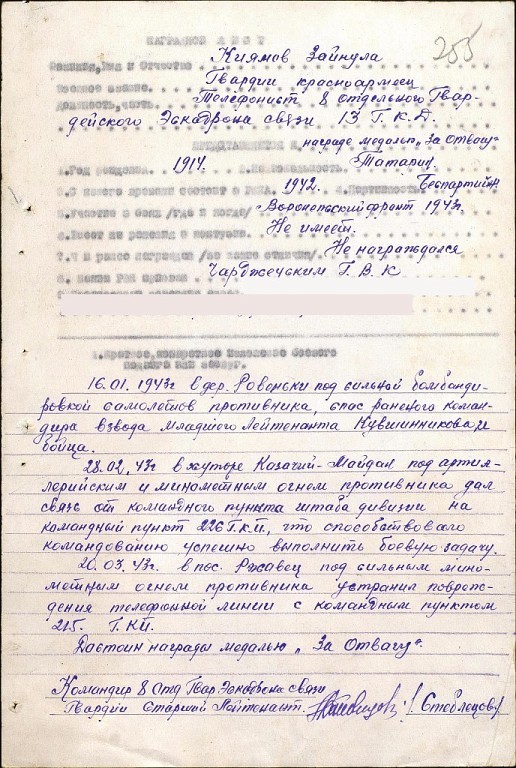 НАГРАДНОЙ ЛИСТ
255
Фамилия, Имя и Отчество Киямов Зайнула
Военное звание Гвардии красноармеец
Должность, часть Телефонист 8 отдельного Гвар-
дейского Эскадрона связи 13 Г.К.Д.
ПРЕДСТАВЛЯЕТСЯ К награде медалью „За Отвагу"
1. Год рождения 1914. 2. Национальность Татарин
3. С какого времени состоит в РККА 1942. 4. Партийность Беспартийн.
5. Участие в боях /где и когда/ Воронежский фронт 1943г.
6. Имеет ли ранения и контузии Не имеет.
7. Чем ранее награжден /за какие отличия/ Не награждался
8. Каким РВК призван Чарджеуским Г.В.К
1. Краткое, конкретное изложение боевого
подвига или заслуг.
16.01.1943г в дер. Ровеньки под сильной бомбанди-
ровкой самолетов противника, спас раненого коман-
дира взвода Младшего Лейтенанта Кувшинникова и
бойца.
28.02.43г в хуторе Казачий-Майдал под артил-
лерийским и минометным огнем противника дал
связь от командного пункта штаба дивизии на
командный пункт 226 Г.К.П., что способствовало
командованию успешно выполнить боевую задачу.
20.03.43г. в пос. Ржавец под сильным мино-
метным огнем противника устранил повреж-
дения телефонной линии с командным пунктом
215 Г.К.П.
Достоин награды медалью „За Отвагу".
Командир 8 Отд Гвар. Эскадрона связи
Гвардии Старший Лейтенант /Стеблецов/